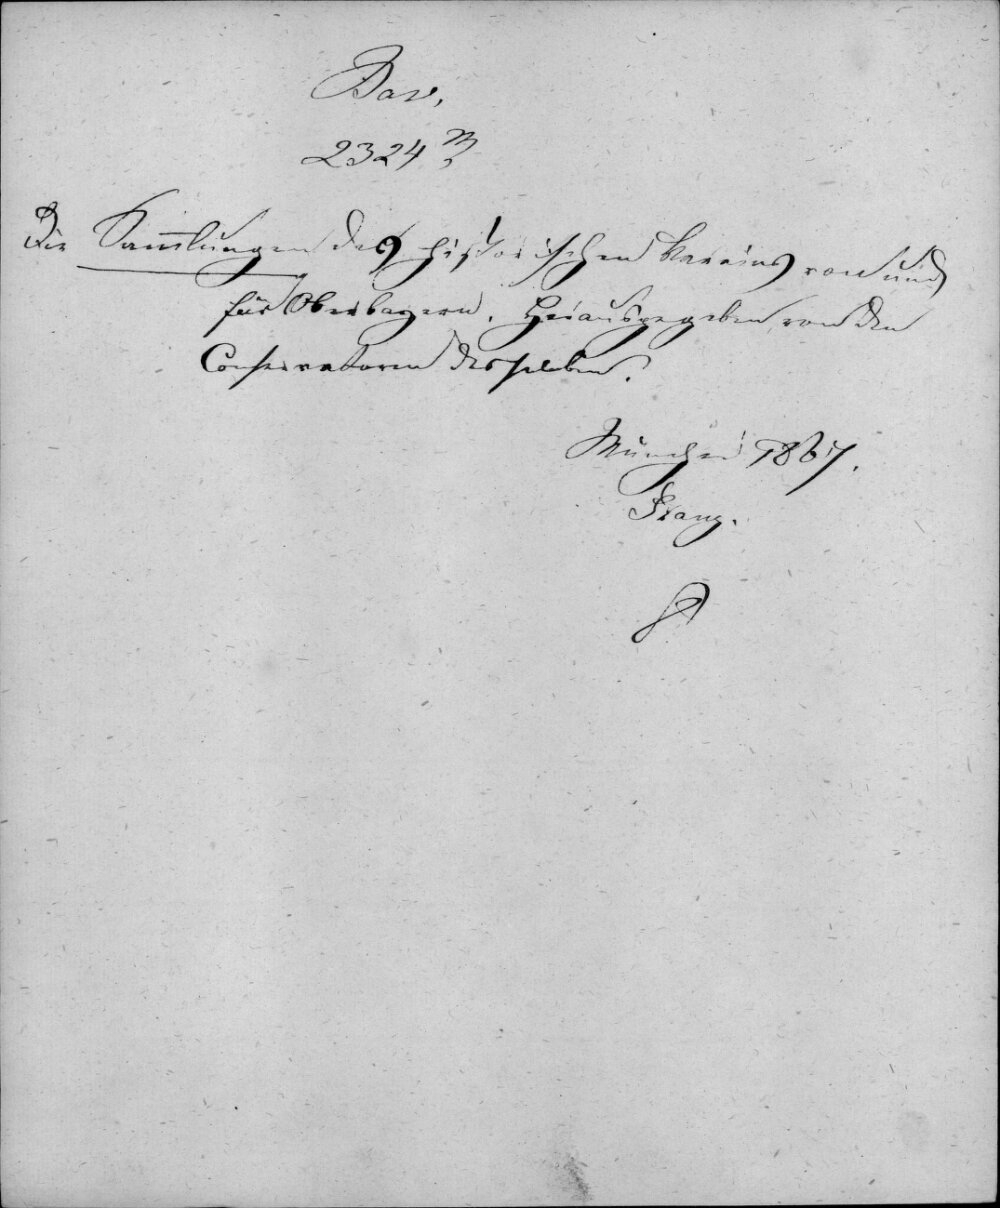 Bav.
2324 m
Die Sam̅lungen des historischen Vereins von und
für Oberbayern. Herausgegeben von den
Conservatoren desselben.
München 1867.
Franz.
8